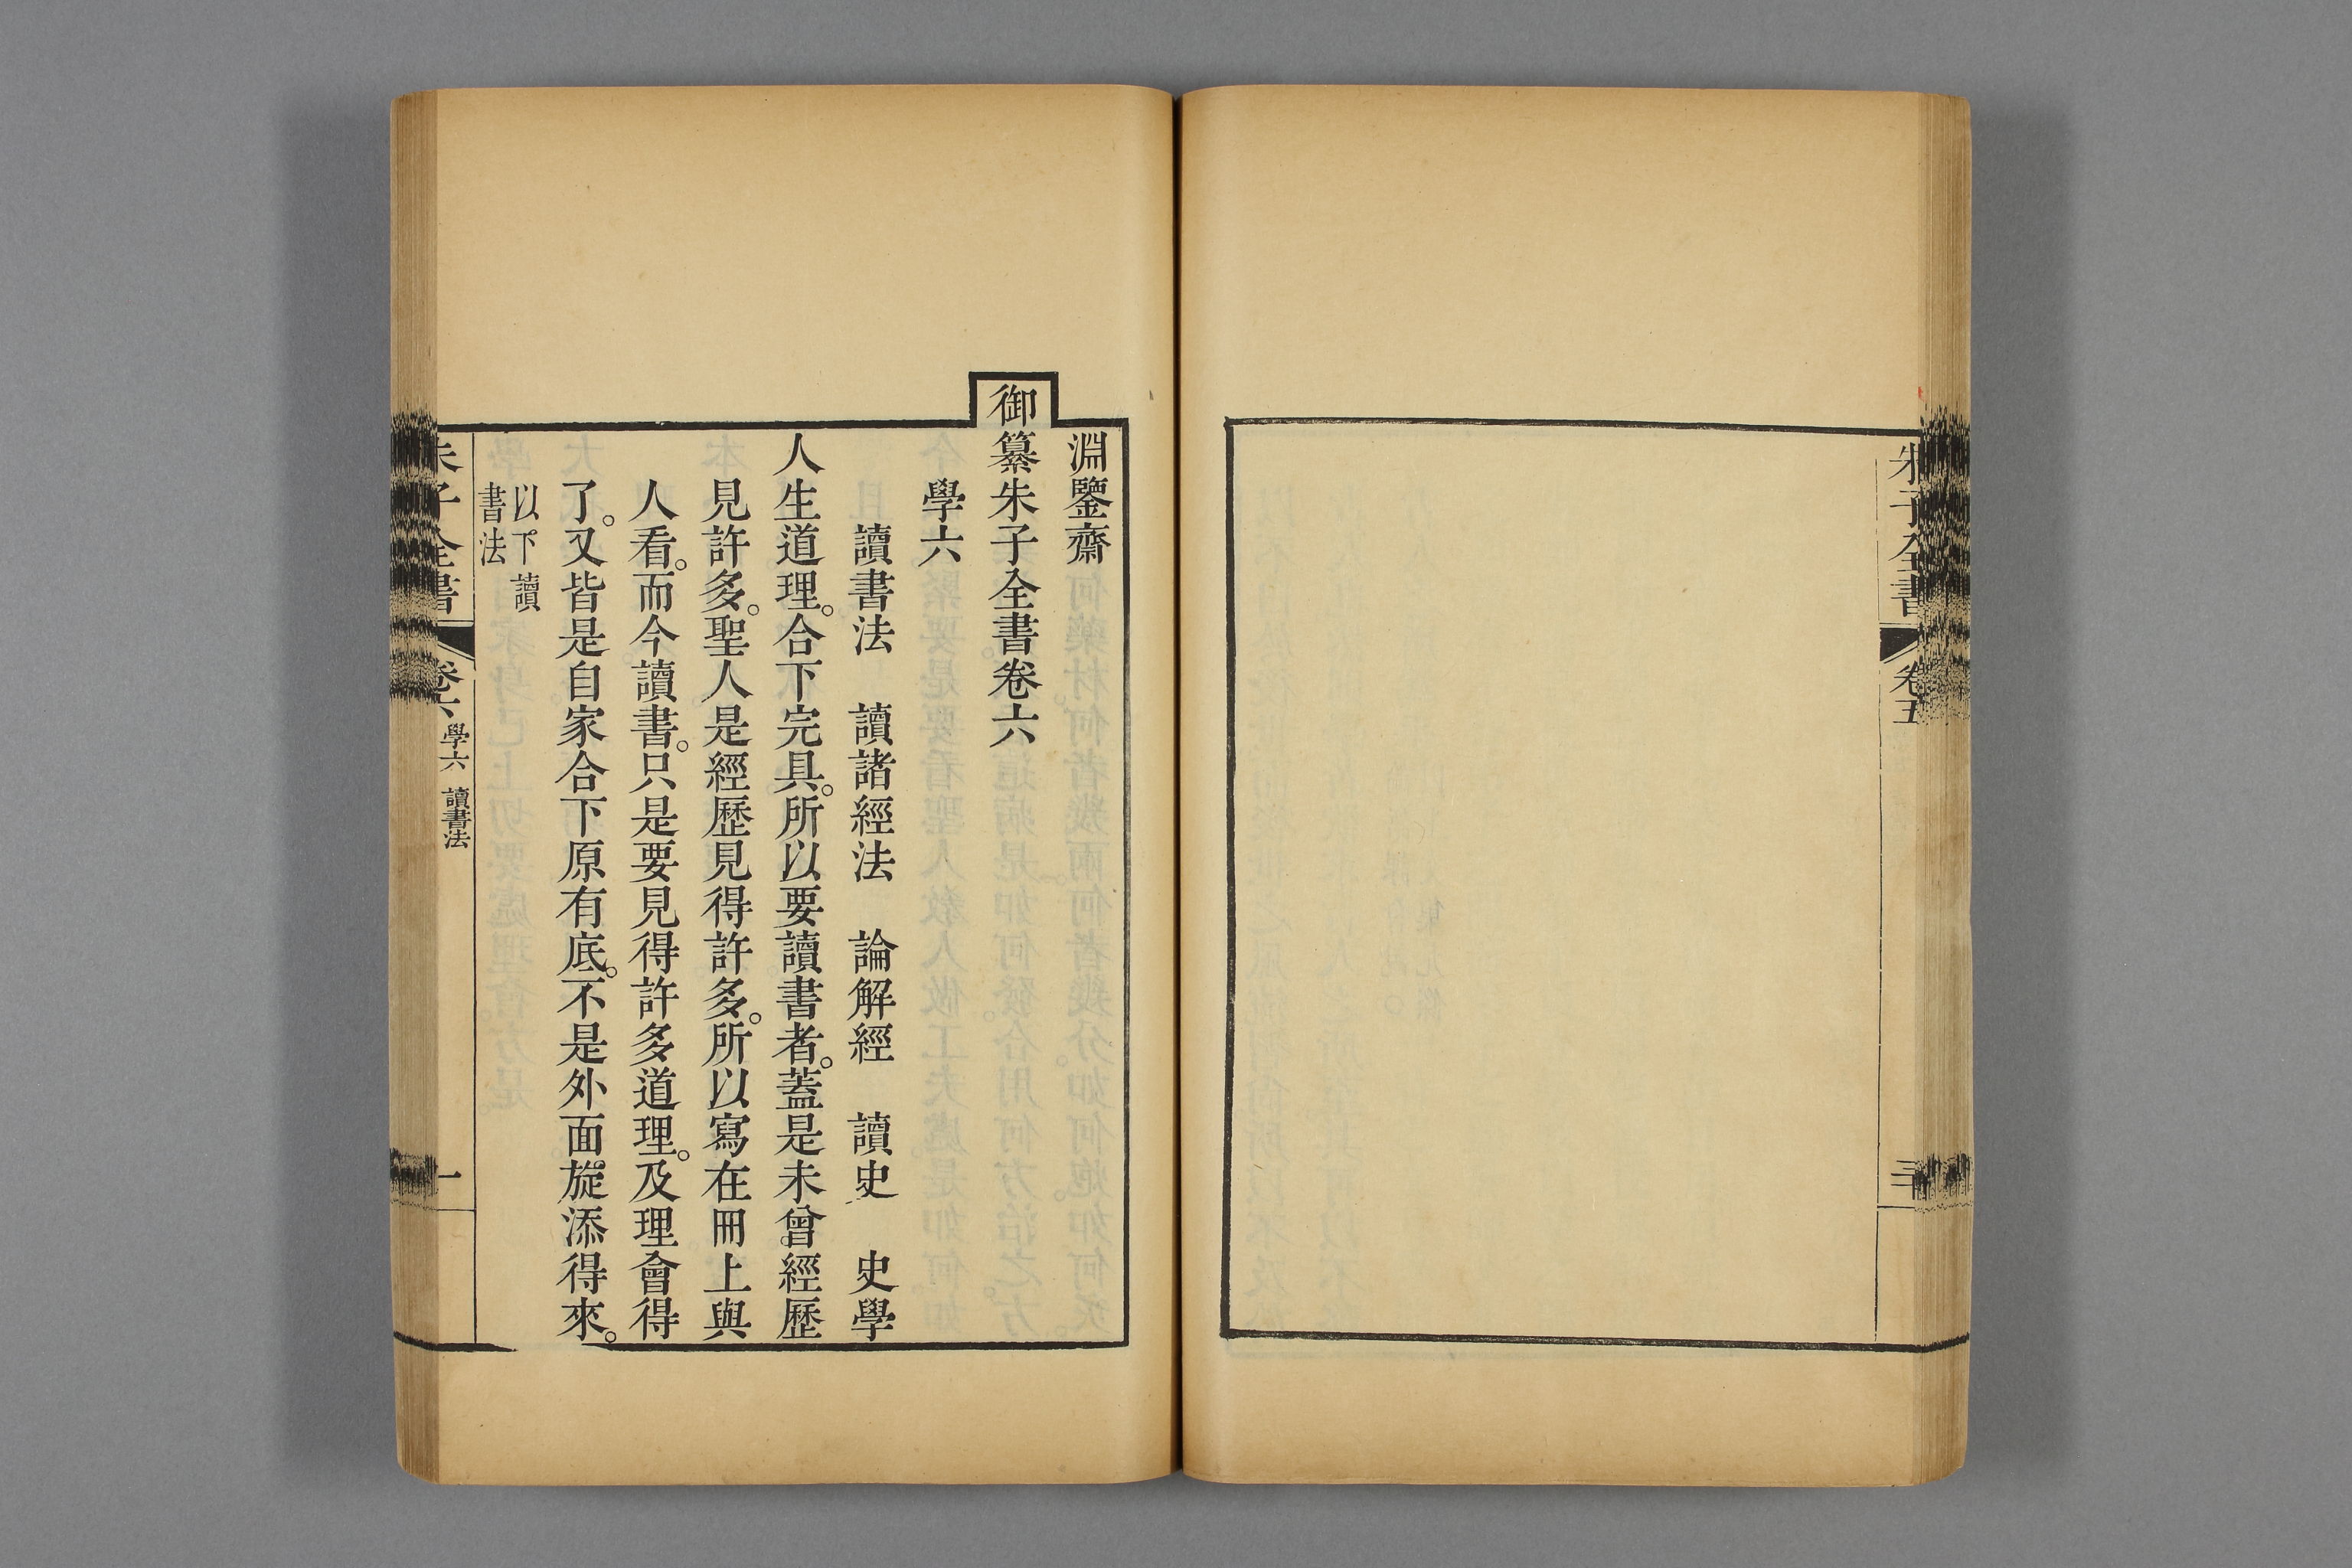 朱子全書 卷五
淵鑒齋
御纂朱子全書卷六
學六
讀書法 讀諸經法 論解經 讀史 史學
人生道理。合下完具。所以要讀書者。蓋是未曾經歷
見許多。聖人是經歷見得許多。所以寫在冊上與
人看。而今讀書。只是要見得許多道理。及理會得
了。又皆是自家合下原有底。不是外面旋添得來。
以下讀
書法
朱子全書 卷六 學六 讀書法 一